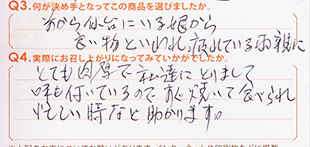 Q3.何が決め手となってこの商品を選びましたか。
から仙台にいる娘から
良い物といわれ疲れている両親に
Q4.実際にお召し上がりになってみていかがでしたか。
とても肉厚で私達にとりまして
味も付いているのですぐ焼いて食べられ
忙しい時など助かります。